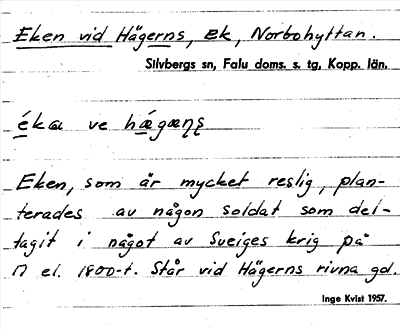 Eken vid Hägerns, ek, Norbohyttan.
Silvbergs sn, Falu doms. s. tg, Kopp. län.
éka ve hǽgæɳʂ
Eken, som är mycket reslig, plan-
terades av någon soldat som del-
tagit i något av Sveriges krig på
17 el. 1800-t. Står vid Hägerns rivna gd.
Inge Kvist 1957.